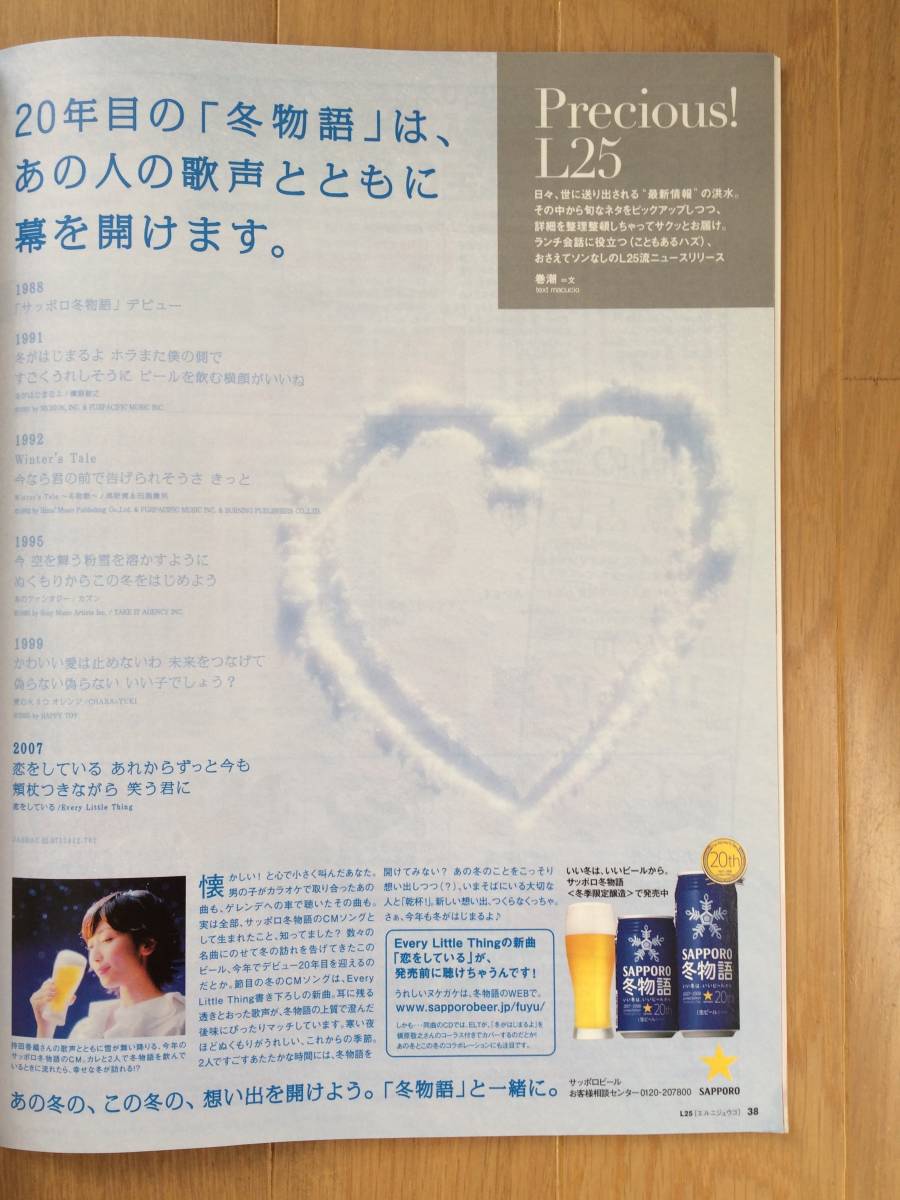 20年目の「冬物語」は、
あの人の歌声とともに
幕を開けます。
Precious!
L25
日々、世に送り出される"最新情報"の洪水。
その中から旬なネタをピックアップしつつ、
詳細を整理整頓しちゃってサクッとお届け。
ランチ会話に役立つ(こともあるハズ)、
おさえてソンなしのL25流ニュースリリース
巻潮 =文
text macucio
1988
「サッポロ冬物語」デビュー
1991
冬がはじまるよ ホラまた僕の側で
すごくうれしそうに ビールを飲む横顔がいいね
冬がはじまるよ/槇原敬之
1992
Winter's Tale
今なら君の前で告げられそうさ きっと
Winter's Tale ～冬物語～/高野寛&田島貴男
1995
今 空を舞う粉雪を溶かすように
ぬくもりからこの冬をはじめよう
冬のファンタジー/カズン
1999
かわいい愛は止めないわ 未来をつなげて
偽らない偽らない いい子でしょう?
愛の火 3つ オレンジ/CHARA+YUKI
©1999 by HAPPY TOY
2007
恋をしている あれからずっと今も
頬杖つきながら 笑う君に
恋をしている/Every Little Thing
懐かしい!と心で小さく叫んだあなた。
男の子がカラオケで取り合ったあの
曲も、ゲレンデへの車で聴いたその曲も。
実は全部、サッポロ冬物語のCMソングと
して生まれたこと、知ってました? 数々の
名曲にのせて冬の訪れを告げてきたこの
ビール、今年でデビュー20年目を迎えるの
だとか。節目の冬のCMソングは、Every
Little Thing書き下ろしの新曲。耳に残る
透きとおった歌声が、冬物語の上質で澄んだ
後味にぴったりマッチしています。寒い夜
ほどぬくもりがうれしい、これからの季節。
2人ですごすあたたかな時間には、冬物語を
開けてみない? あの冬のことをこっそり
想い出しつつ(?)、いまそばにいる大切な
人と「乾杯!」。新しい想い出、つくらなくっちゃ。
さぁ、今年も冬がはじまるよ♪
Every Little Thingの新曲
「恋をしている」が、
発売前に聴けちゃうんです!
うれしいヌケガケは、冬物語のWEBで。
www.sapporobeer.jp/fuyu/
しかも…同曲のCDでは、ELTが、「冬がはじまるよ」を
槇原敬之さんのコーラス付きでカバーするのだとか!
あの冬とこの冬のコラボレーションにも注目です。
持田香織さんの歌声とともに雪が舞い降りる、今年の
サッポロ冬物語のCM。カレと2人で冬物語を飲んで
いるときに流れたら、幸せな冬が訪れる!?
いい冬は、いいビールから。
サッポロ冬物語
<冬季限定醸造>で発売中
20th
SAPPORO
冬物語
いい冬は、いいビールから
20th
SAPPORO
冬物語
いい冬は、いいビールから
20th
あの冬の、この冬の、想い出を開けよう。「冬物語」と一緒に。
サッポロビール
お客様相談センター0120-207800
SAPPORO
L25[エルニジュウゴ] 38